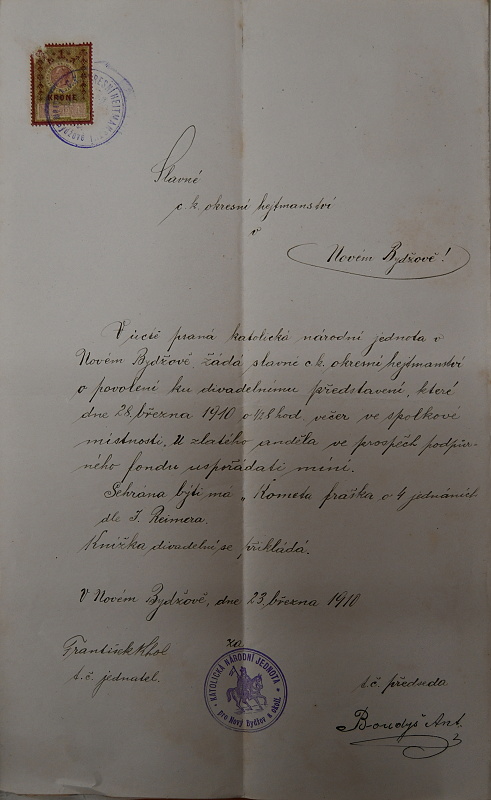 1
KRONE
OKRESNÍ HEJTMAN
Slavné
c. k. okresní hejtmanství
v
Novém Bydžově!
V úctě psaná katolická národní jednota v
Novém Bydžově, žádá slavné c.k. okresní hejtmanství
o povolení ku divadelnímu představení, které
dne 28. března 1910 o ½8 hod. večer ve spolkové
místnosti, U zlatého anděla ve prospěch podpůr-
ného fondu uspořádati míní.
Sehrána býti má „Kometa fraška o 4 jednáních
dle J. Reimera.
Knížka divadelní se přikládá.
V Novém Bydžově, dne 23. března 1910
za
František Khol
t.č. jednatel.
KATOLICKÁ NÁRODNÍ JEDNOTA
pro Nový Bydžov a okolí.
t.č. předseda
Boudyš Ant.